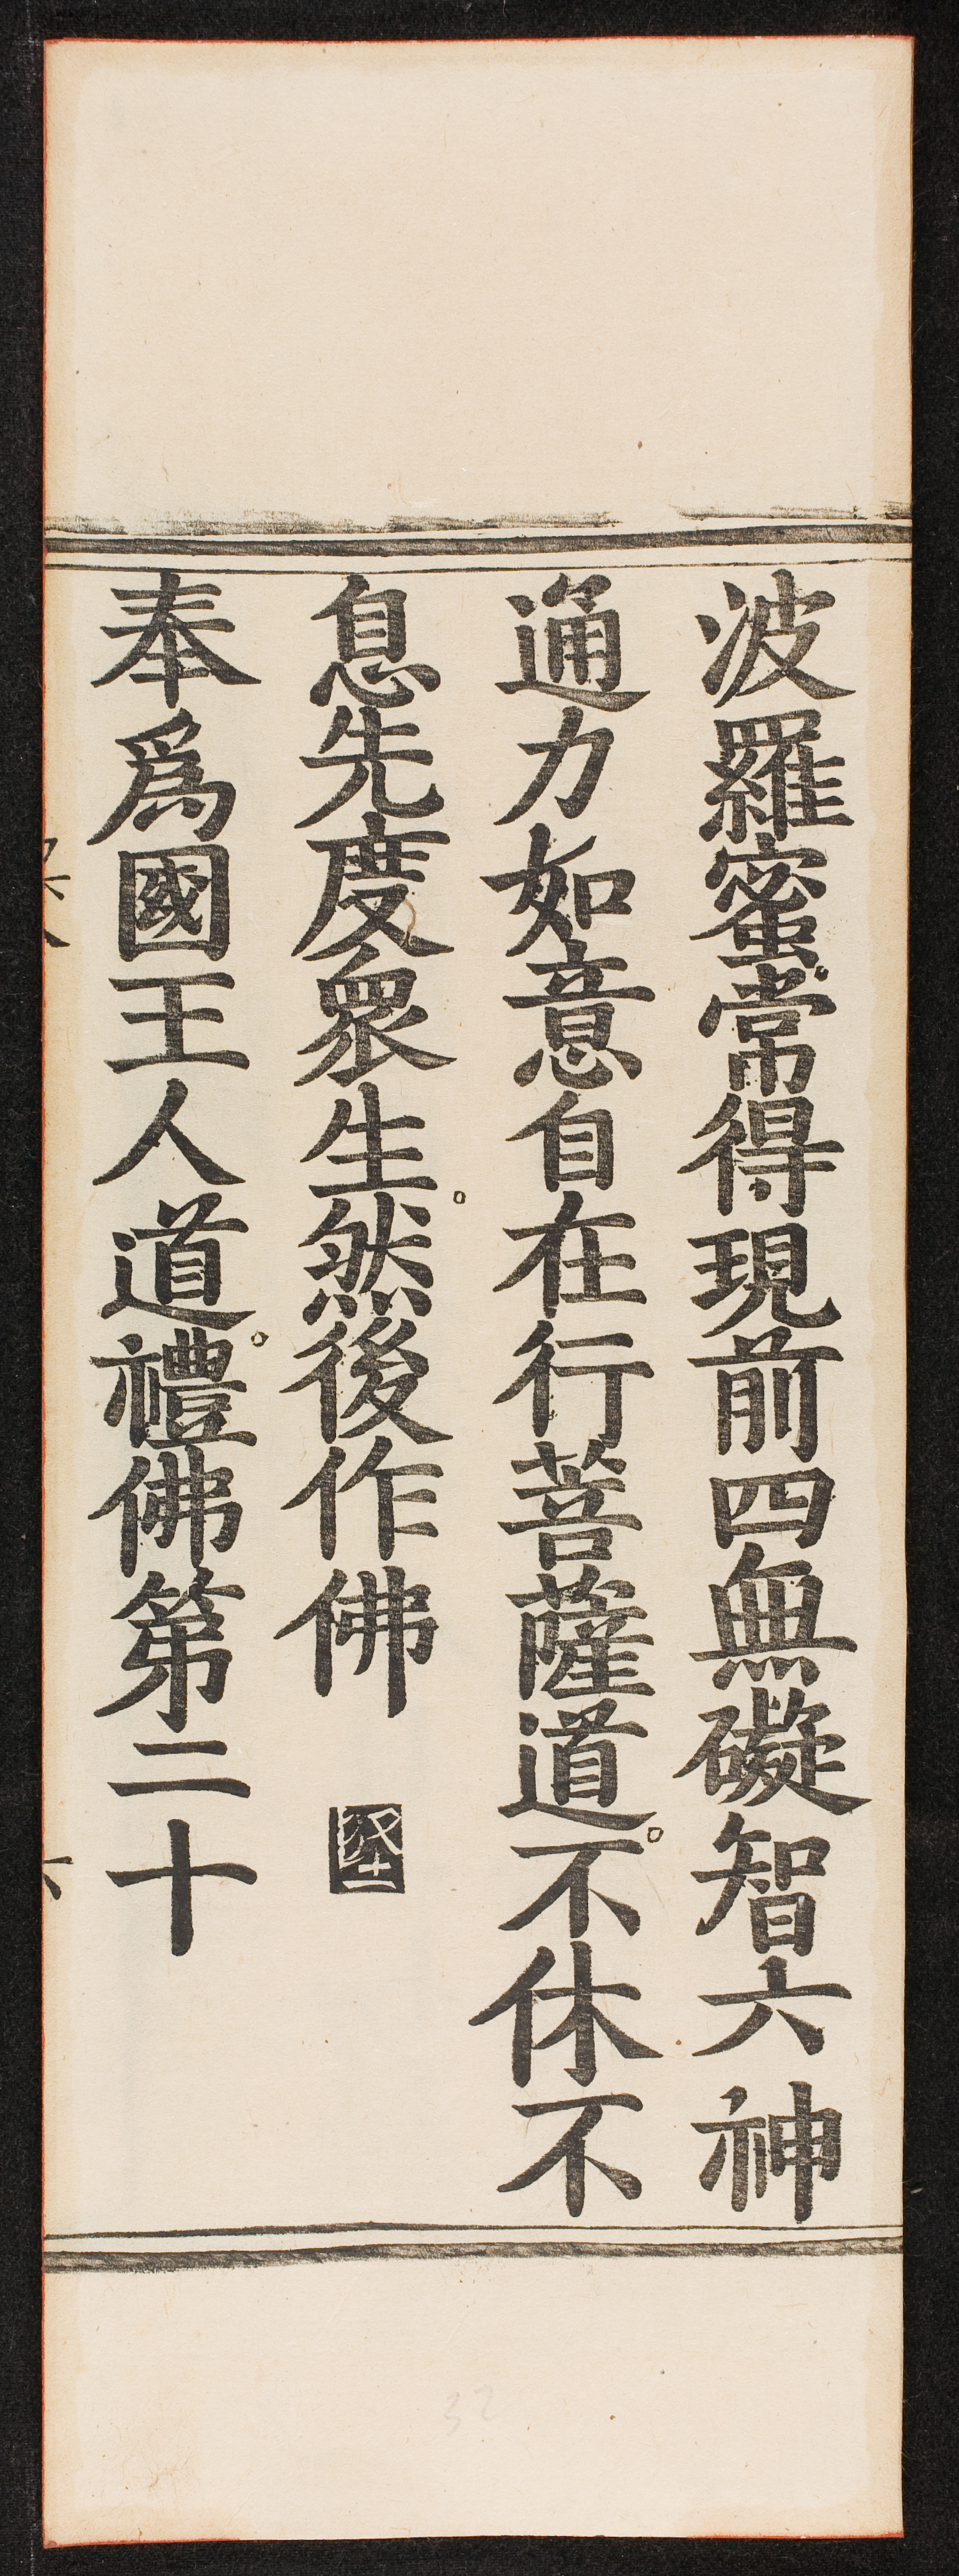 波羅蜜。常得現前四無礙智六神
通力如意自在行菩薩道。不休不
息先度衆生。然後作佛
奉爲國王人道。禮佛第二十
六
32